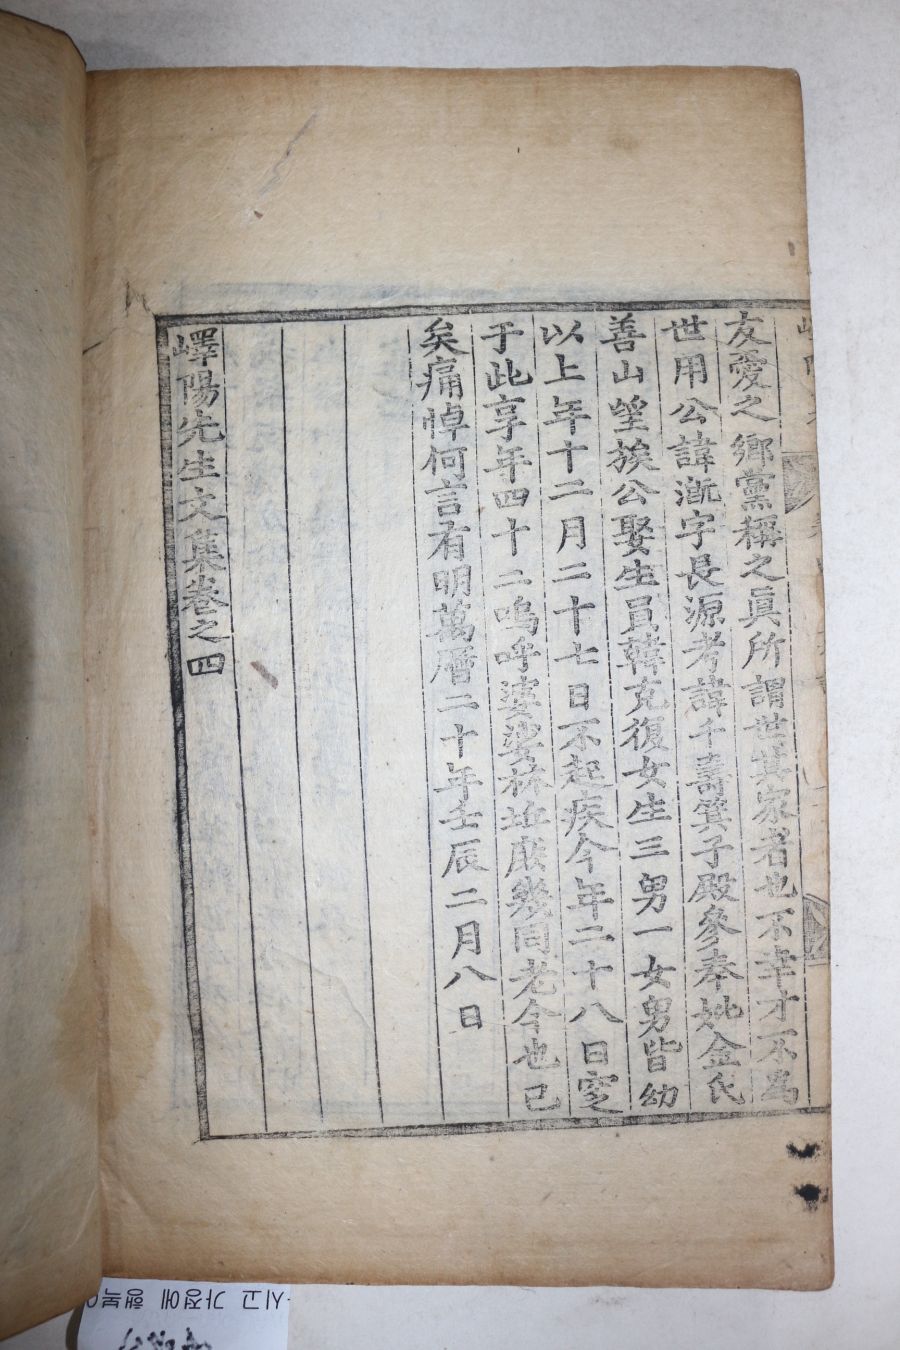 友愛之鄕黨稱之眞所謂世其家者也不幸才不爲
世用公諱漸字長源考諱千壽箕子殿參奉妣金氏
善山望族公娶生員韓克復女生三男一女男皆幼
以上年十二月二十七日不起疾今年二十八日窆
于此享年四十二嗚呼婆娑林丘庶幾同老今也已
矣痛悼何言有明萬曆二十年壬辰二月八日
嶧陽先生文集卷之四
시고 가정에 행복